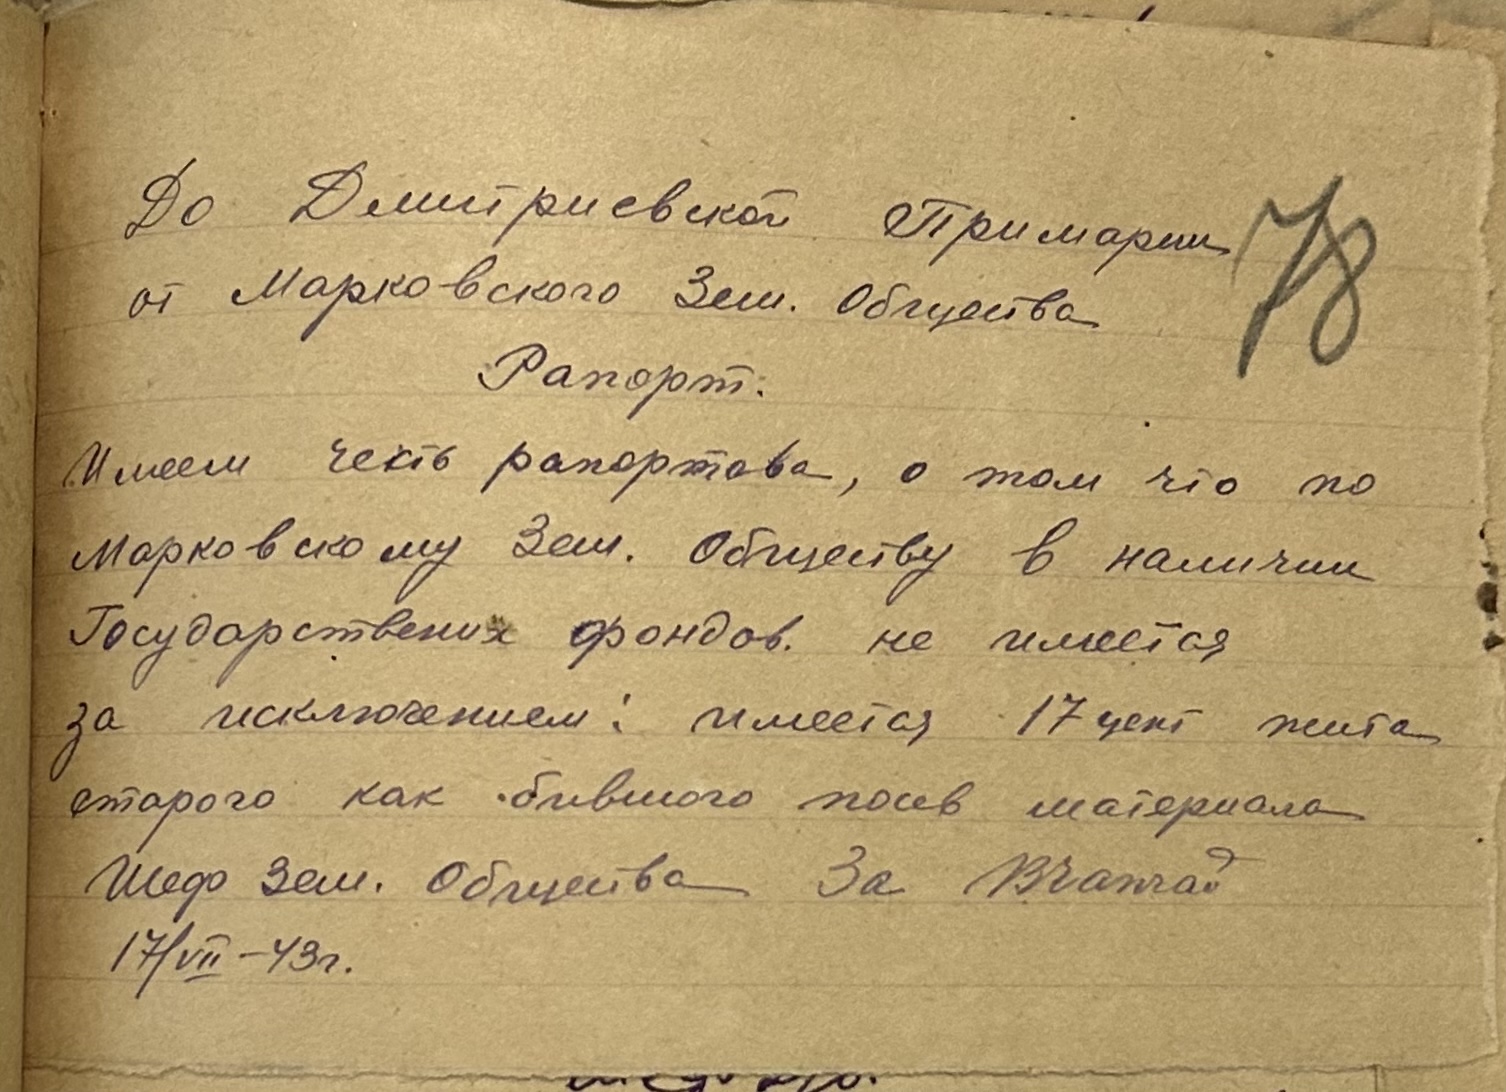 До Дмитриевской Примарии
78
от Марковского Зем. Общества
Рапорт.
Имеем честь рапортова, о том что по
Марковскому Зем. Обществу в наличии
Государствених фондов. не имеется
за исключением: имеется 17 цент жита
старого как бившого посев материала
Шеф Зем. Общества За
17/VII-43г.